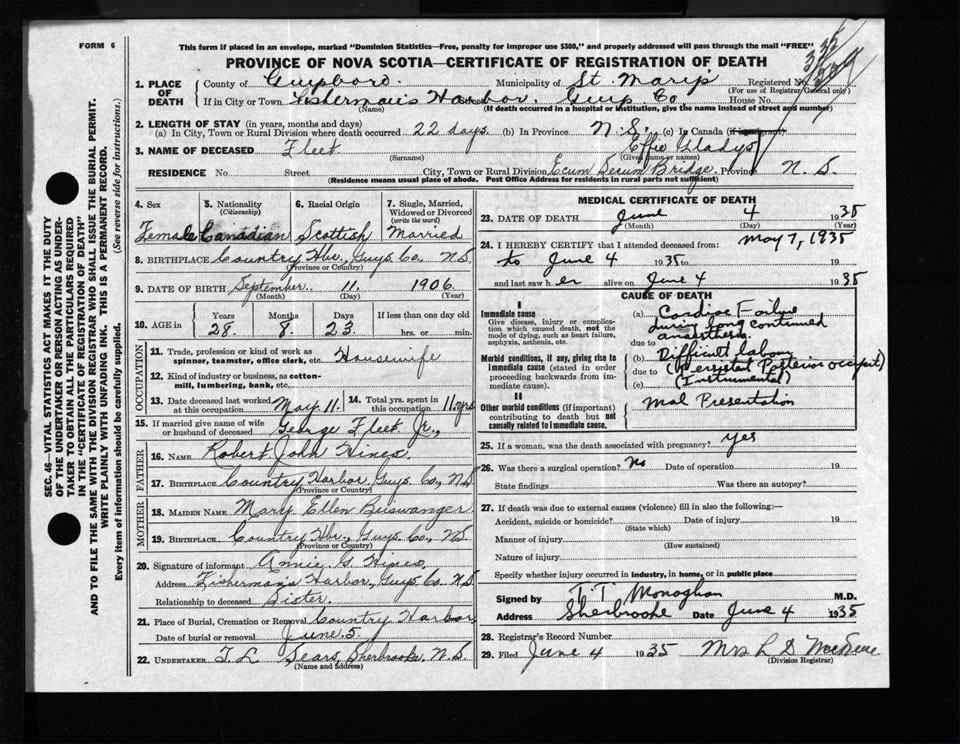 FORM 6
This form if placed in an envelope, marked "Dominion Statistics—Free, penalty for improper use $300," and properly addressed will pass through the mail "FREE"
PROVINCE OF NOVA SCOTIA—CERTIFICATE OF REGISTRATION OF DEATH
1. PLACE OF DEATH
County of Guysboro. Municipality of St. Mary's Registered No.
(For use of Registrar General only)
If in City or Town Fisherman's Harbor, Guys. Co. House No.
(Name) (If death occurred in a hospital or institution, give the name instead of street and number)
2. LENGTH OF STAY (in years, months and days)
(a) In City, Town or Rural Division where death occurred 22 days. (b) In Province N.S. (c) In Canada (if immigrant)
3. NAME OF DECEASED Fleet Effie Gladys
(Surname) (Given name or names)
RESIDENCE No. Street City, Town or Rural Division Ecum Secum Bridge, Province N.S.
(Residence means usual place of abode. Post Office Address for residents in rural parts not sufficient)
4. Sex Female
5. Nationality (Citizenship) Canadian
6. Racial Origin Scottish
7. Single, Married, Widowed or Divorced (write the word) Married
8. BIRTHPLACE Country Hbr., Guys. Co. N.S.
(Province or Country)
9. DATE OF BIRTH September. 11. 1906.
(Month) (Day) (Year)
10. AGE in Years 28. Months 8. Days 23. If less than one day old hrs. or min.
OCCUPATION
11. Trade, profession or kind of work as spinner, teamster, office clerk, etc. Housewife
12. Kind of industry or business, as cotton-mill, lumbering, bank, etc.
13. Date deceased last worked at this occupation May. 11. 14. Total yrs. spent in this occupation 11 yrs.
15. If married give name of wife or husband of deceased George Fleet Jr.,
FATHER
16. NAME Robert John Hines.
17. BIRTHPLACE Country Harbor, Guys. Co., N.S.
(Province or Country)
MOTHER
18. MAIDEN NAME Mary Ellen Biswanger.
19. BIRTHPLACE Country Hbr., Guys. Co., N.S.
(Province or Country)
20. Signature of informant Annie G. Hines.
Address Fisherman's Harbor, Guys. Co. N.S.
Relationship to deceased Sister.
21. Place of Burial, Cremation or Removal Country Harbor
Date of burial or removal June. 5.
22. UNDERTAKER T. L. Sears, Sherbrooke, N.S.
(Name and address)
MEDICAL CERTIFICATE OF DEATH
23. DATE OF DEATH June 4 1935
(Month) (Day) (Year)
24. I HEREBY CERTIFY that I attended deceased from: May 7, 1935
to June 4 1935 to 19
and last saw her alive on June 4 1935
CAUSE OF DEATH
I
Immediate cause
Give disease, injury or complication which caused death, not the mode of dying, such as heart failure, asphyxia, asthenia, etc.
Morbid conditions, if any, giving rise to immediate cause (stated in order proceeding backwards from immediate cause).
II
Other morbid conditions (if important) contributing to death but not causally related to immediate cause.
(a) Cardiac Failure
during long continued
due to anaesthesia.
(b) Difficult labour
due to (Persistent Posterior occiput)
(c) (Instrumental)
Mal Presentation
25. If a woman, was the death associated with pregnancy? yes
26. Was there a surgical operation? No Date of operation 19
State findings Was there an autopsy?
27. If death was due to external causes (violence) fill in also the following:—
Accident, suicide or homicide? Date of injury 19
(State which)
Manner of injury
(How sustained)
Nature of injury
Specify whether injury occurred in industry, in home, or in public place
Signed by T. T. Monaghan M.D.
Address Sherbrooke Date June 4 1935
28. Registrar's Record Number
29. Filed June 4 1935 Mrs L D
(Division Registrar)
SEC. 46—VITAL STATISTICS ACT MAKES IT THE DUTY
OF THE UNDERTAKER OR PERSON ACTING AS UNDERTAKER TO OBTAIN ALL THE PARTICULARS REQUIRED
IN THE "CERTIFICATE OF REGISTRATION OF DEATH"
AND TO FILE THE SAME WITH THE DIVISION REGISTRAR WHO SHALL ISSUE THE BURIAL PERMIT.
WRITE PLAINLY WITH UNFADING INK. THIS IS A PERMANENT RECORD.
Every item of information should be carefully supplied. (See reverse side for instructions.)